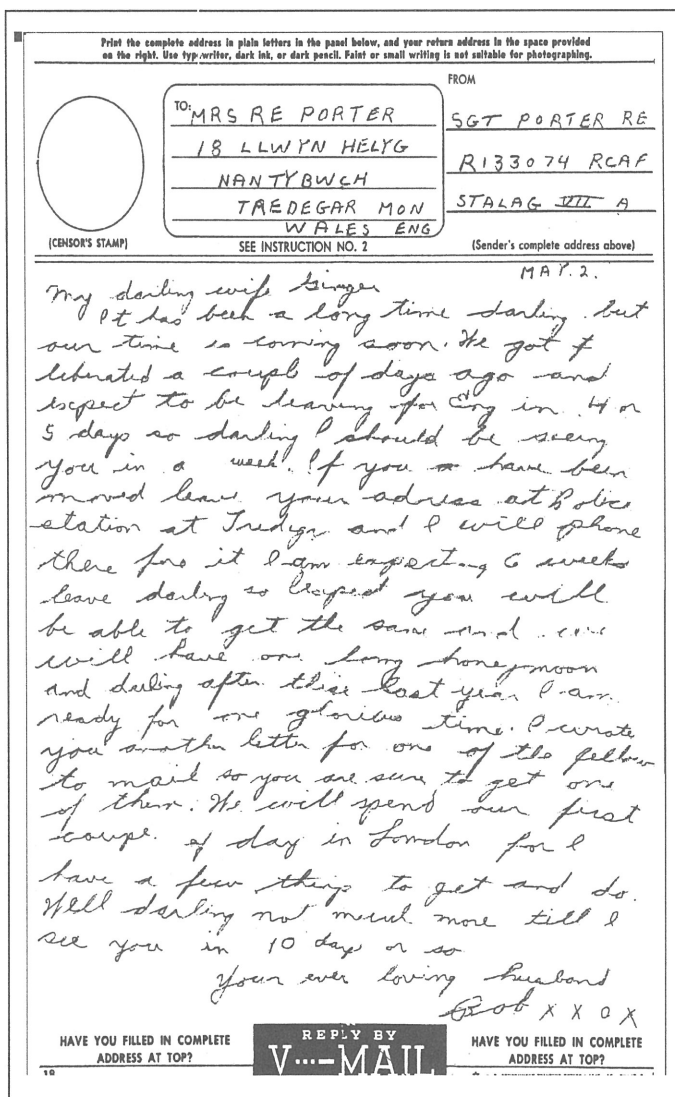 Print the complete address in plain letters in the panel below, and your return address in the space provided
on the right. Use typewriter, dark ink, or dark pencil. Faint or small writing is not suitable for photographing.
FROM
TO: MRS RE PORTER
18 LLWYN HELYG
NANTYBWCH
TREDEGAR MON
WALES ENG
SGT PORTER RE
R133074 RCAF
STALAG VII A
(CENSOR'S STAMP)
SEE INSTRUCTION NO. 2
(Sender's complete address above)
MAY. 2.
My darling wife Ginger
It has been a long time darling but
our time is coming soon. We got
liberated a couple of days ago and
expect to be leaving for Eng in 4 or
5 days so darling I should be seeing
you in a week. If you have been
moved leave your address at Police
station at Tredegar and I will phone
there for it I am expecting 6 weeks
leave darling so I expect you will
be able to get the same and we
will have one long honeymoon
and darling after these last year I am
ready for one glorious time. I wrote
you another letter for one of the fellow
to mail so you are sure to get one
of them. We will spend our first
coupe of day in London for I
have a few things to get and do.
Well darling not much more till I
see you in 10 days or so
Your ever loving husband
Bob x x o x
HAVE YOU FILLED IN COMPLETE
ADDRESS AT TOP?
REPLY BY
V···—MAIL
HAVE YOU FILLED IN COMPLETE
ADDRESS AT TOP?